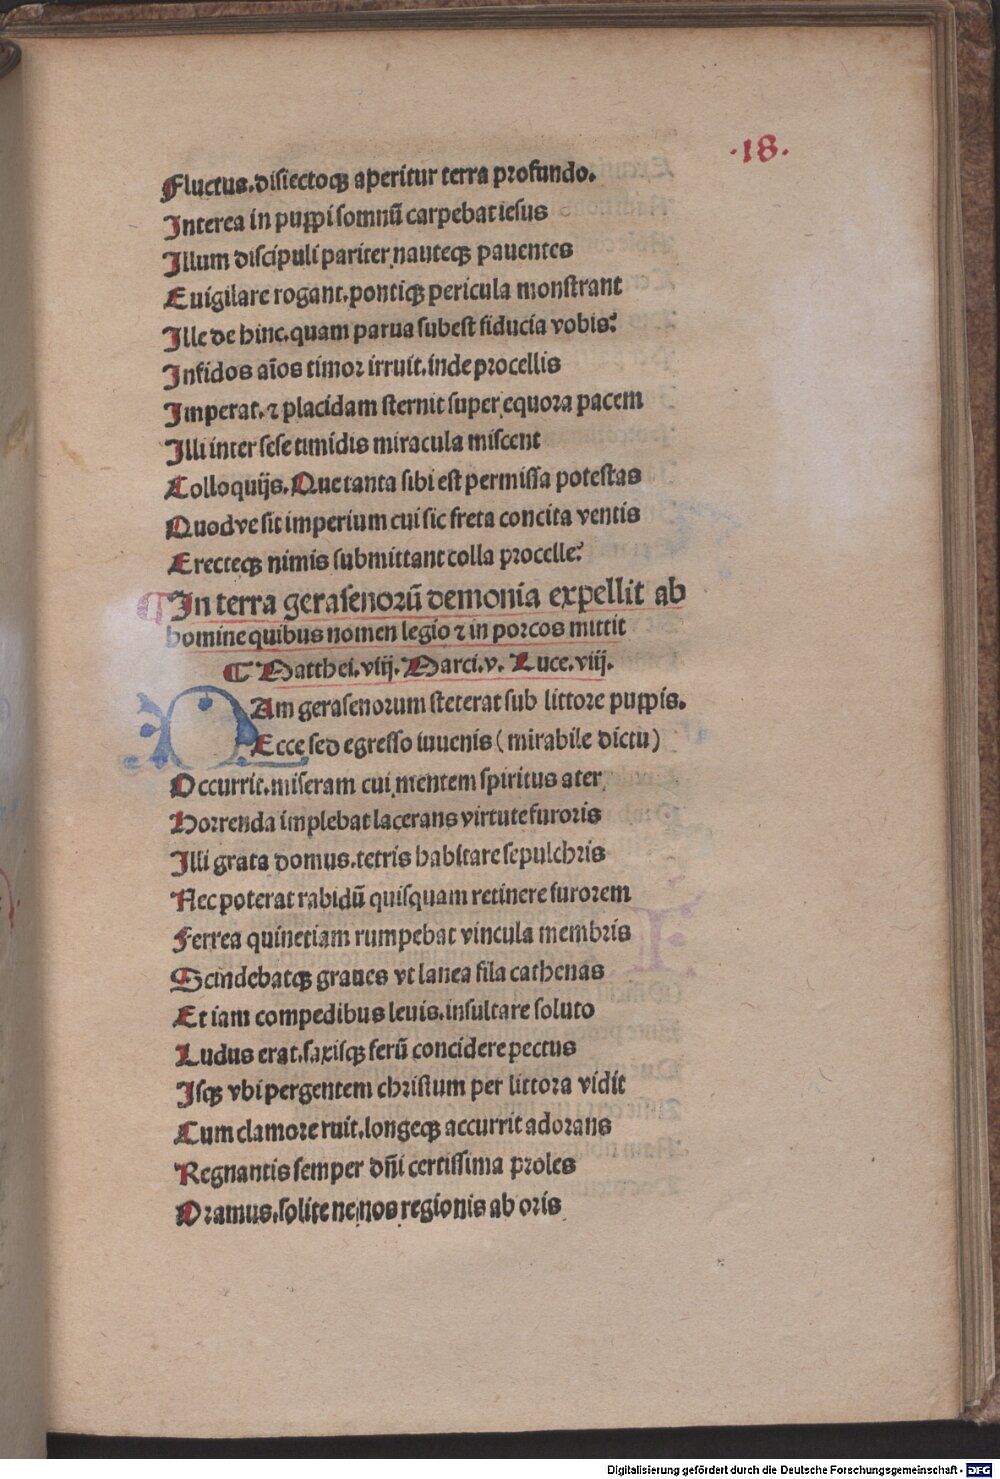 ·18·
Fluctus.disiectoqꝫ aperitur terra profundo.
Interea in puppi somnū carpebat iesus
Illum discipuli pariter nauteqꝫ pauentes
Euigilare rogant.pontiqꝫ pericula monstrant
Ille de hinc.quam parua subest fiducia vobis?
Infidos aīos timor irruit.inde procellis
Imperat.⁊ placidam sternit super equora pacem
Illi inter sese timidis miracula miscent
Colloquijs.Que tanta sibi est permissa potestas
Quodve sit imperium cui sic freta concita ventis
Erecteqꝫ nimis submittant colla procelle?
¶ In terra gerasenorū demonia expellit ab
homine quibus nomen legio ⁊ in porcos mittit
¶ Matthei.viij.Marci.v.Luce.viij.
Iam gerasenorum steterat sub littore puppis.
Ecce sed egresso iuuenis (mirabile dictu)
Occurrit.miseram cui mentem spiritus ater
Horrenda implebat lacerans virtute furoris
Illi grata domus.tetris habitare sepulchris
Nec poterat rabidū quisquam retinere furorem
Ferrea quinetiam rumpebat vincula membris
Scindebatqꝫ graues vt lanea fila cathenas
Et iam compedibus leuis.insultare soluto
Ludus erat.saxisqꝫ ferū concidere pectus
Isqꝫ vbi pergentem christum per littora vidit
Cum clamore ruit.longeqꝫ accurrit adorans
Regnantis semper dn̄i certissima proles
Oramus.solite ne nos regionis ab oris
Digitalisierung gefördert durch die Deutsche Forschungsgemeinschaft - DFG